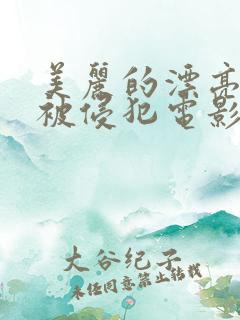 美麗的漂亮
被侵犯電影
大谷纪子
未经同意禁止转载